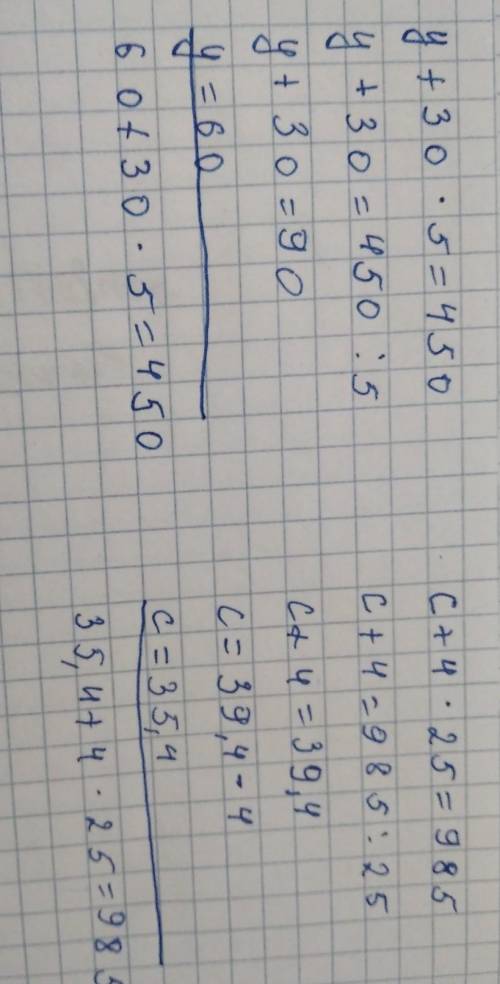 y + 30 · 5 = 450
y + 30 = 450 : 5
y + 30 = 90
y = 60
60 + 30 · 5 = 450
c + 4 · 25 = 985
c + 4 = 985 : 25
c + 4 = 39,4
c = 39,4 - 4
c = 35,4
35,4 + 4 · 25 = 985